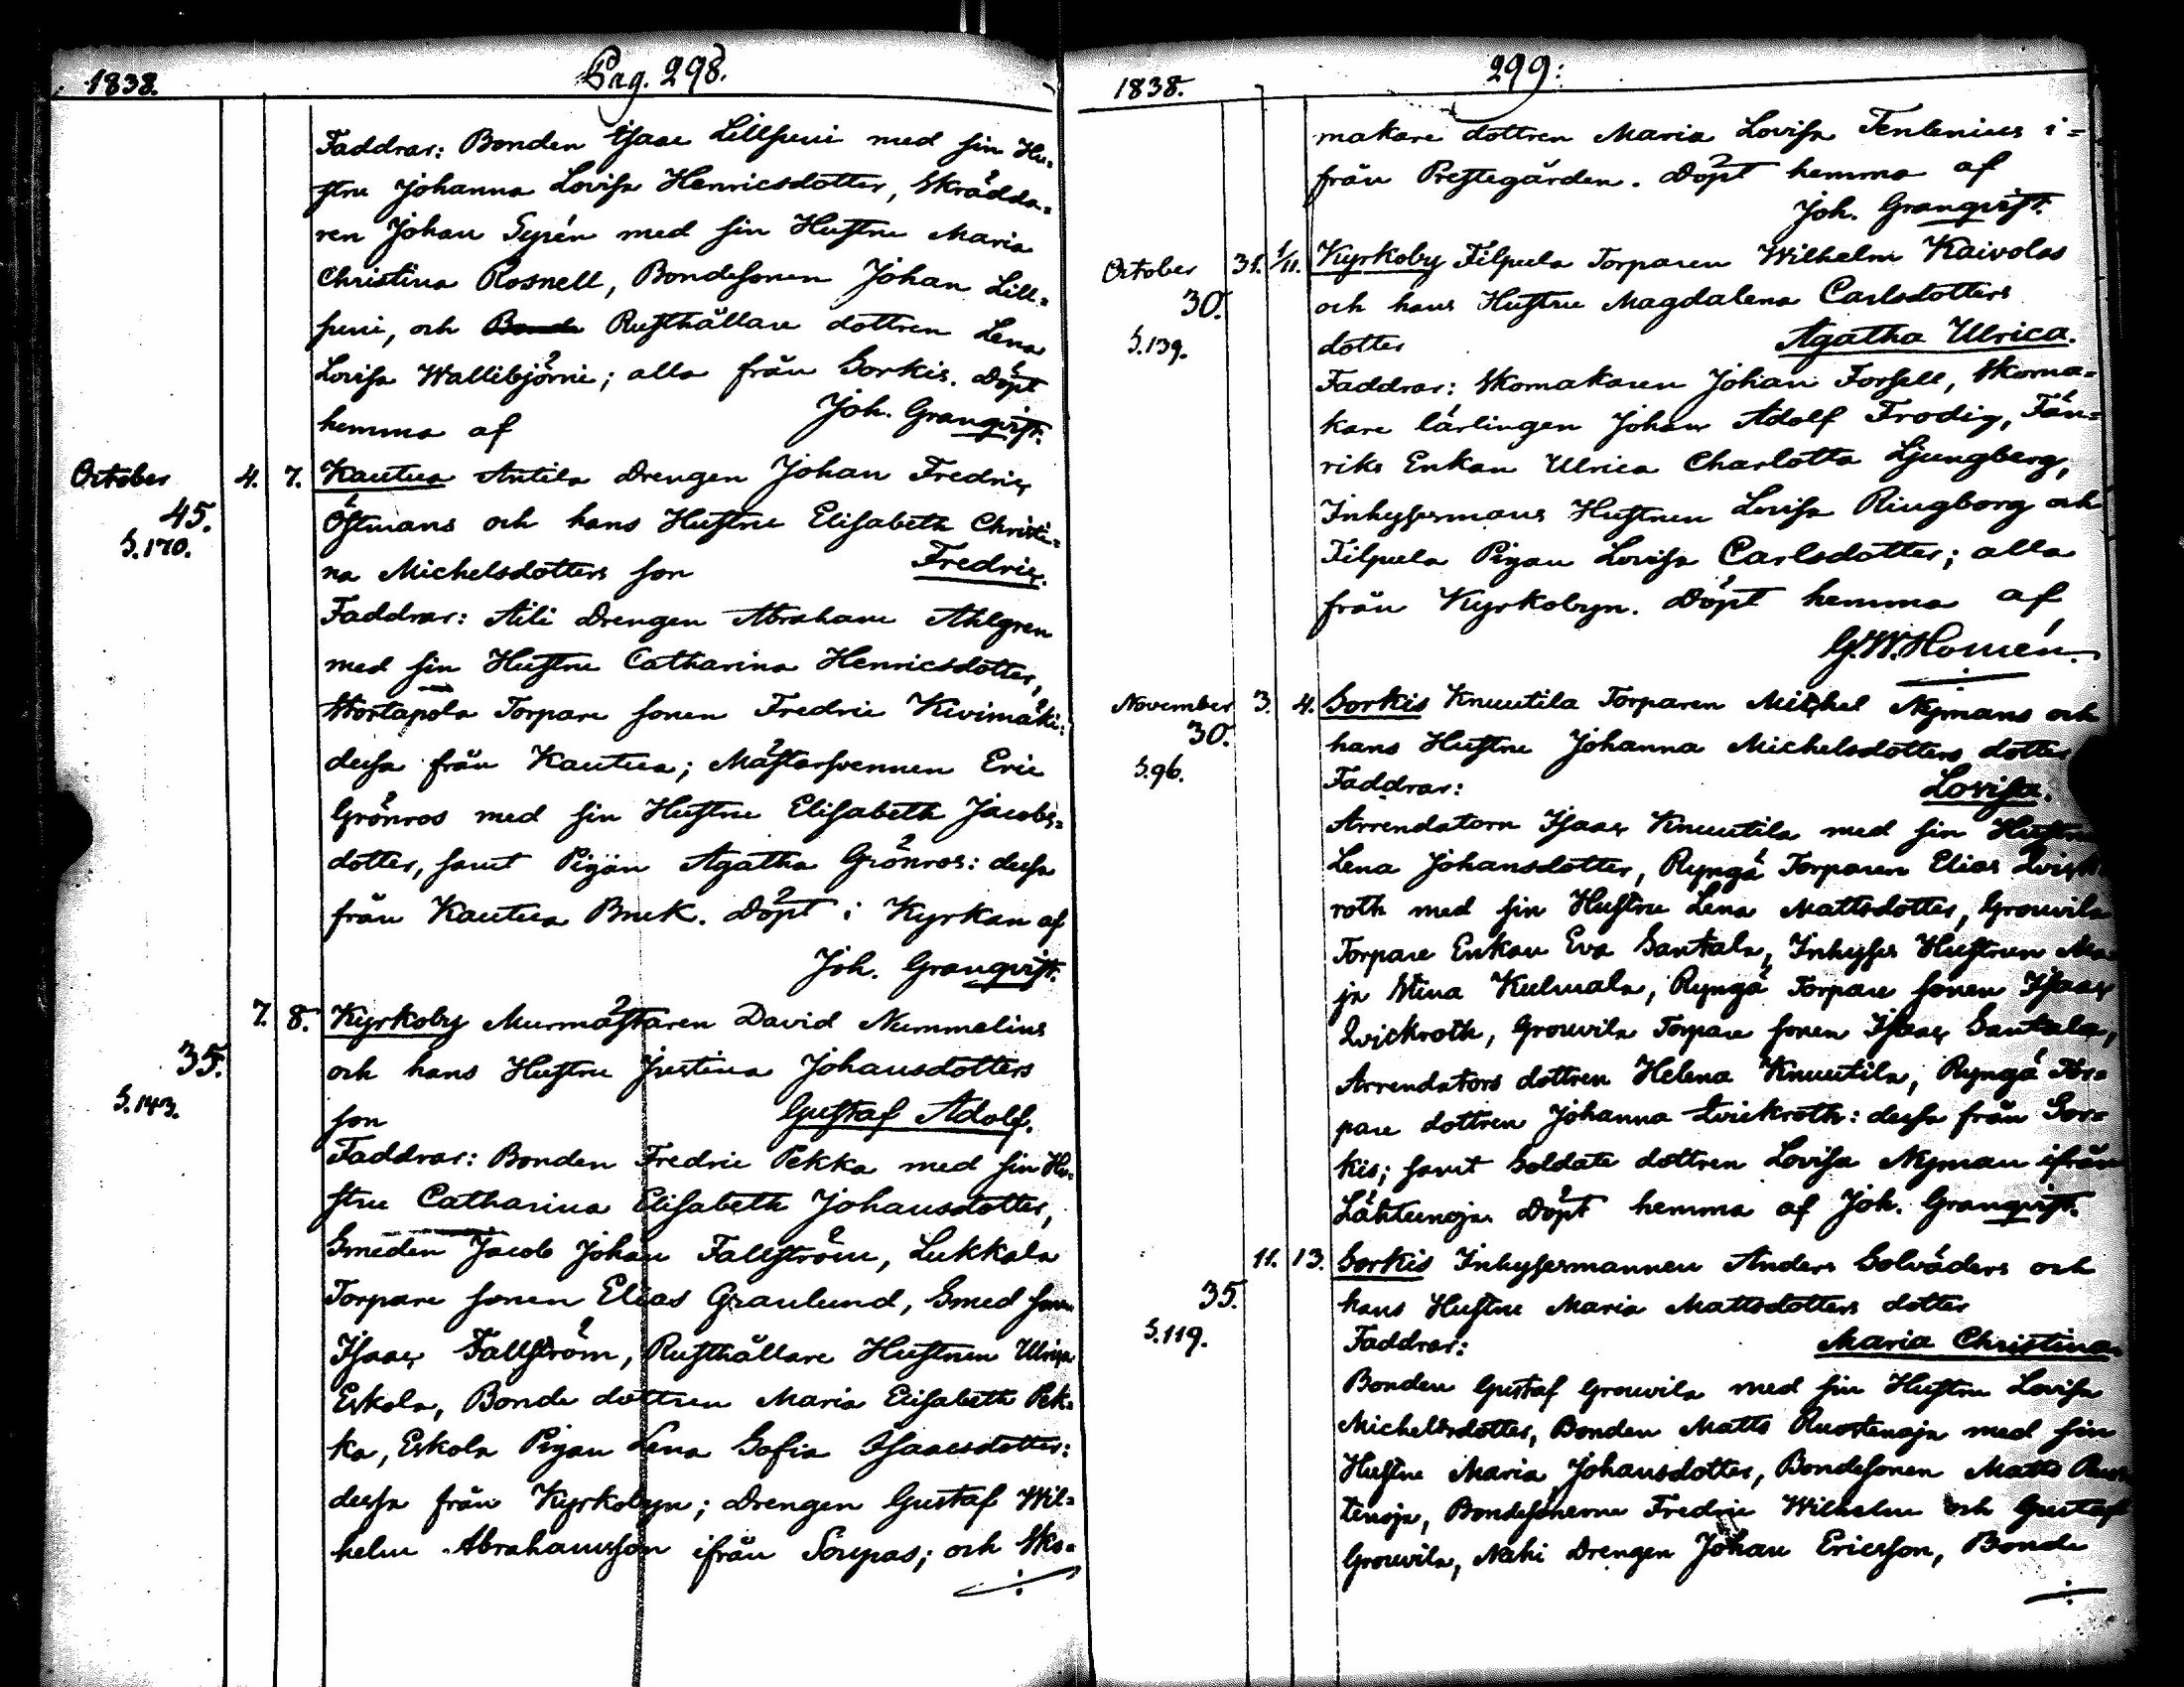 1838. Pag. 298.
Faddrar: Bonden Isaac Lillsuni med sin Hu-
stru Johanna Lovisa Henricsdotter, Skrädda-
ren Johan Syrén med sin Hustru Maria
Christina Rosnell, Bondesonen Johan Lill-
suni, och Rusthållare dottren Lena
Lovisa Wallibjörni; alla från Sorkis. Döpt
hemma af Joh. Granqvist.
October 4. 7. Kautua Antila Drengen Johan Fredric
45. Östmans och hans Hustru Elisabeth Christi-
S.170. na Michelsdotters son Fredric.
Faddrar: Aili Drengen Abraham Ahlgren
med sin Hustru Catharina Henricsdotter,
Stortapola Torpare sonen Fredric Kivimäki:
dessa från Kautua; Mästarsvennen Eric
Grönros med sin Hustru Elisabeth Jacobs-
dotter, samt Pigan Agatha Grönros: dessa
från Kautua Bruk. Döpt i Kyrkan af
Joh. Granqvist.
7. 8. Kyrkoby Murmästaren David Nummelins
35. och hans Hustru Justina Johansdotters
S.143. son Gustaf Adolf.
Faddrar: Bonden Fredric Pekka med sin Hu-
stru Catharina Elisabeth Johansdotter,
Smeden Jacob Johan Fallström, Lukkala
Torpare sonen Elias Granlund, Smed sonen
Isaac Fallström, Rusthållare Hustrun Ulrica
Eskola, Bonde dottren Maria Elisabeth Pek-
ka, Eskola Pigan Lena Sofia Isaacsdotter:
dessa från Kyrkobyn; Drengen Gustaf Wil-
helm Abrahamsson ifrån Sorpas; och Sko-
1838. 299:
makare dottren Maria Lovisa Tenlenius i-
från Prestegården. Döpt hemma af
Joh. Granqvist.
October 31. 1/11. Kyrkoby Filpula Torparen Wilhelm Kaivolas
30. och hans Hustru Magdalena Carlsdotters
S.139. dotter Agatha Ulrica.
Faddrar: Skomakaren Johan Forsell, Skoma-
kare lärlingen Johan Adolf Frodig, Fän-
riks Enkan Ulrica Charlotta Ljungberg,
Inhysesmans Hustrun Lovisa Ringborg och
Filpula Pigan Lovisa Carlsdotter; alla
från Kyrkobyn. Döpt hemma af
G.W. Homén.
November 3. 4. Sorkis Knuutila Torparen Michel Nymans och
30. hans Hustru Johanna Michelsdotters dotter
S.96. Faddrar: Lovisa.
Arrendatorn Isaac Knuutila med sin Hustru
Lena Johansdotter, Ryngä Torparen Elias Qvick-
roth med sin Hustru Lena Mattsdotter, Grouvila
Torpare Enkan Eva Santala, Inhyses Hustrun Ma-
ja Stina Kulmala, Ryngä Torpare sonen Isaac
Qvickroth, Grouvila Torpare sonen Isaac Santala,
Arrendators dottren Helena Knuutila, Ryngä Tor-
pare dottren Johanna Qvickroth: dessa från Sor-
kis; samt Soldate dottren Lovisa Nyman ifrån
Lähteenoja. Döpt hemma af Joh. Granqvist.
11. 13. Sorkis Inhysesmannen Anders Solväders och
35. hans Hustru Maria Mattsdotters dotter
S.119. Faddrar: Maria Christina.
Bonden Gustaf Grouvila med sin Hustru Lovisa
Michelsdotter, Bonden Matts Ruostenoja med sin
Hustru Maria Johansdotter, Bondesonen Matts Ruos-
tenoja, Bondesönerne Fredric Wilhelm och Gustaf
Grouvila, Nahi Drengen Johan Ericsson, Bonde